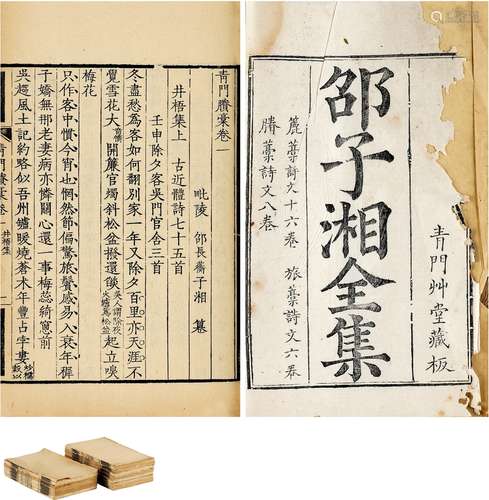 青門艸堂藏板
邵子湘全集
麓藁詩文十六卷 旅藁詩文六卷
賸藁詩文八卷
青門賸藁卷一
毗陵 邵長蘅子湘 纂
井梧集上 古近體詩七十五首
壬申除夕客吳門官舍三首
冬盡愁為客如何翻別家一年又除夕百里亦天涯不
覺雪花大開簾官燭斜松盆撥還燄吳人謂除夜火爲松盆起立嗅
梅花
只作客中慣今宵也惘然節偏驚旅鬢感易入衰年穉
子嬌無那老妻病亦憐關心還一事梅蕊綺窻前
吳趨風土記約略似吾州爐暖燒蒼朮年豐占字婁
青門賸藁卷一 井梧集 一